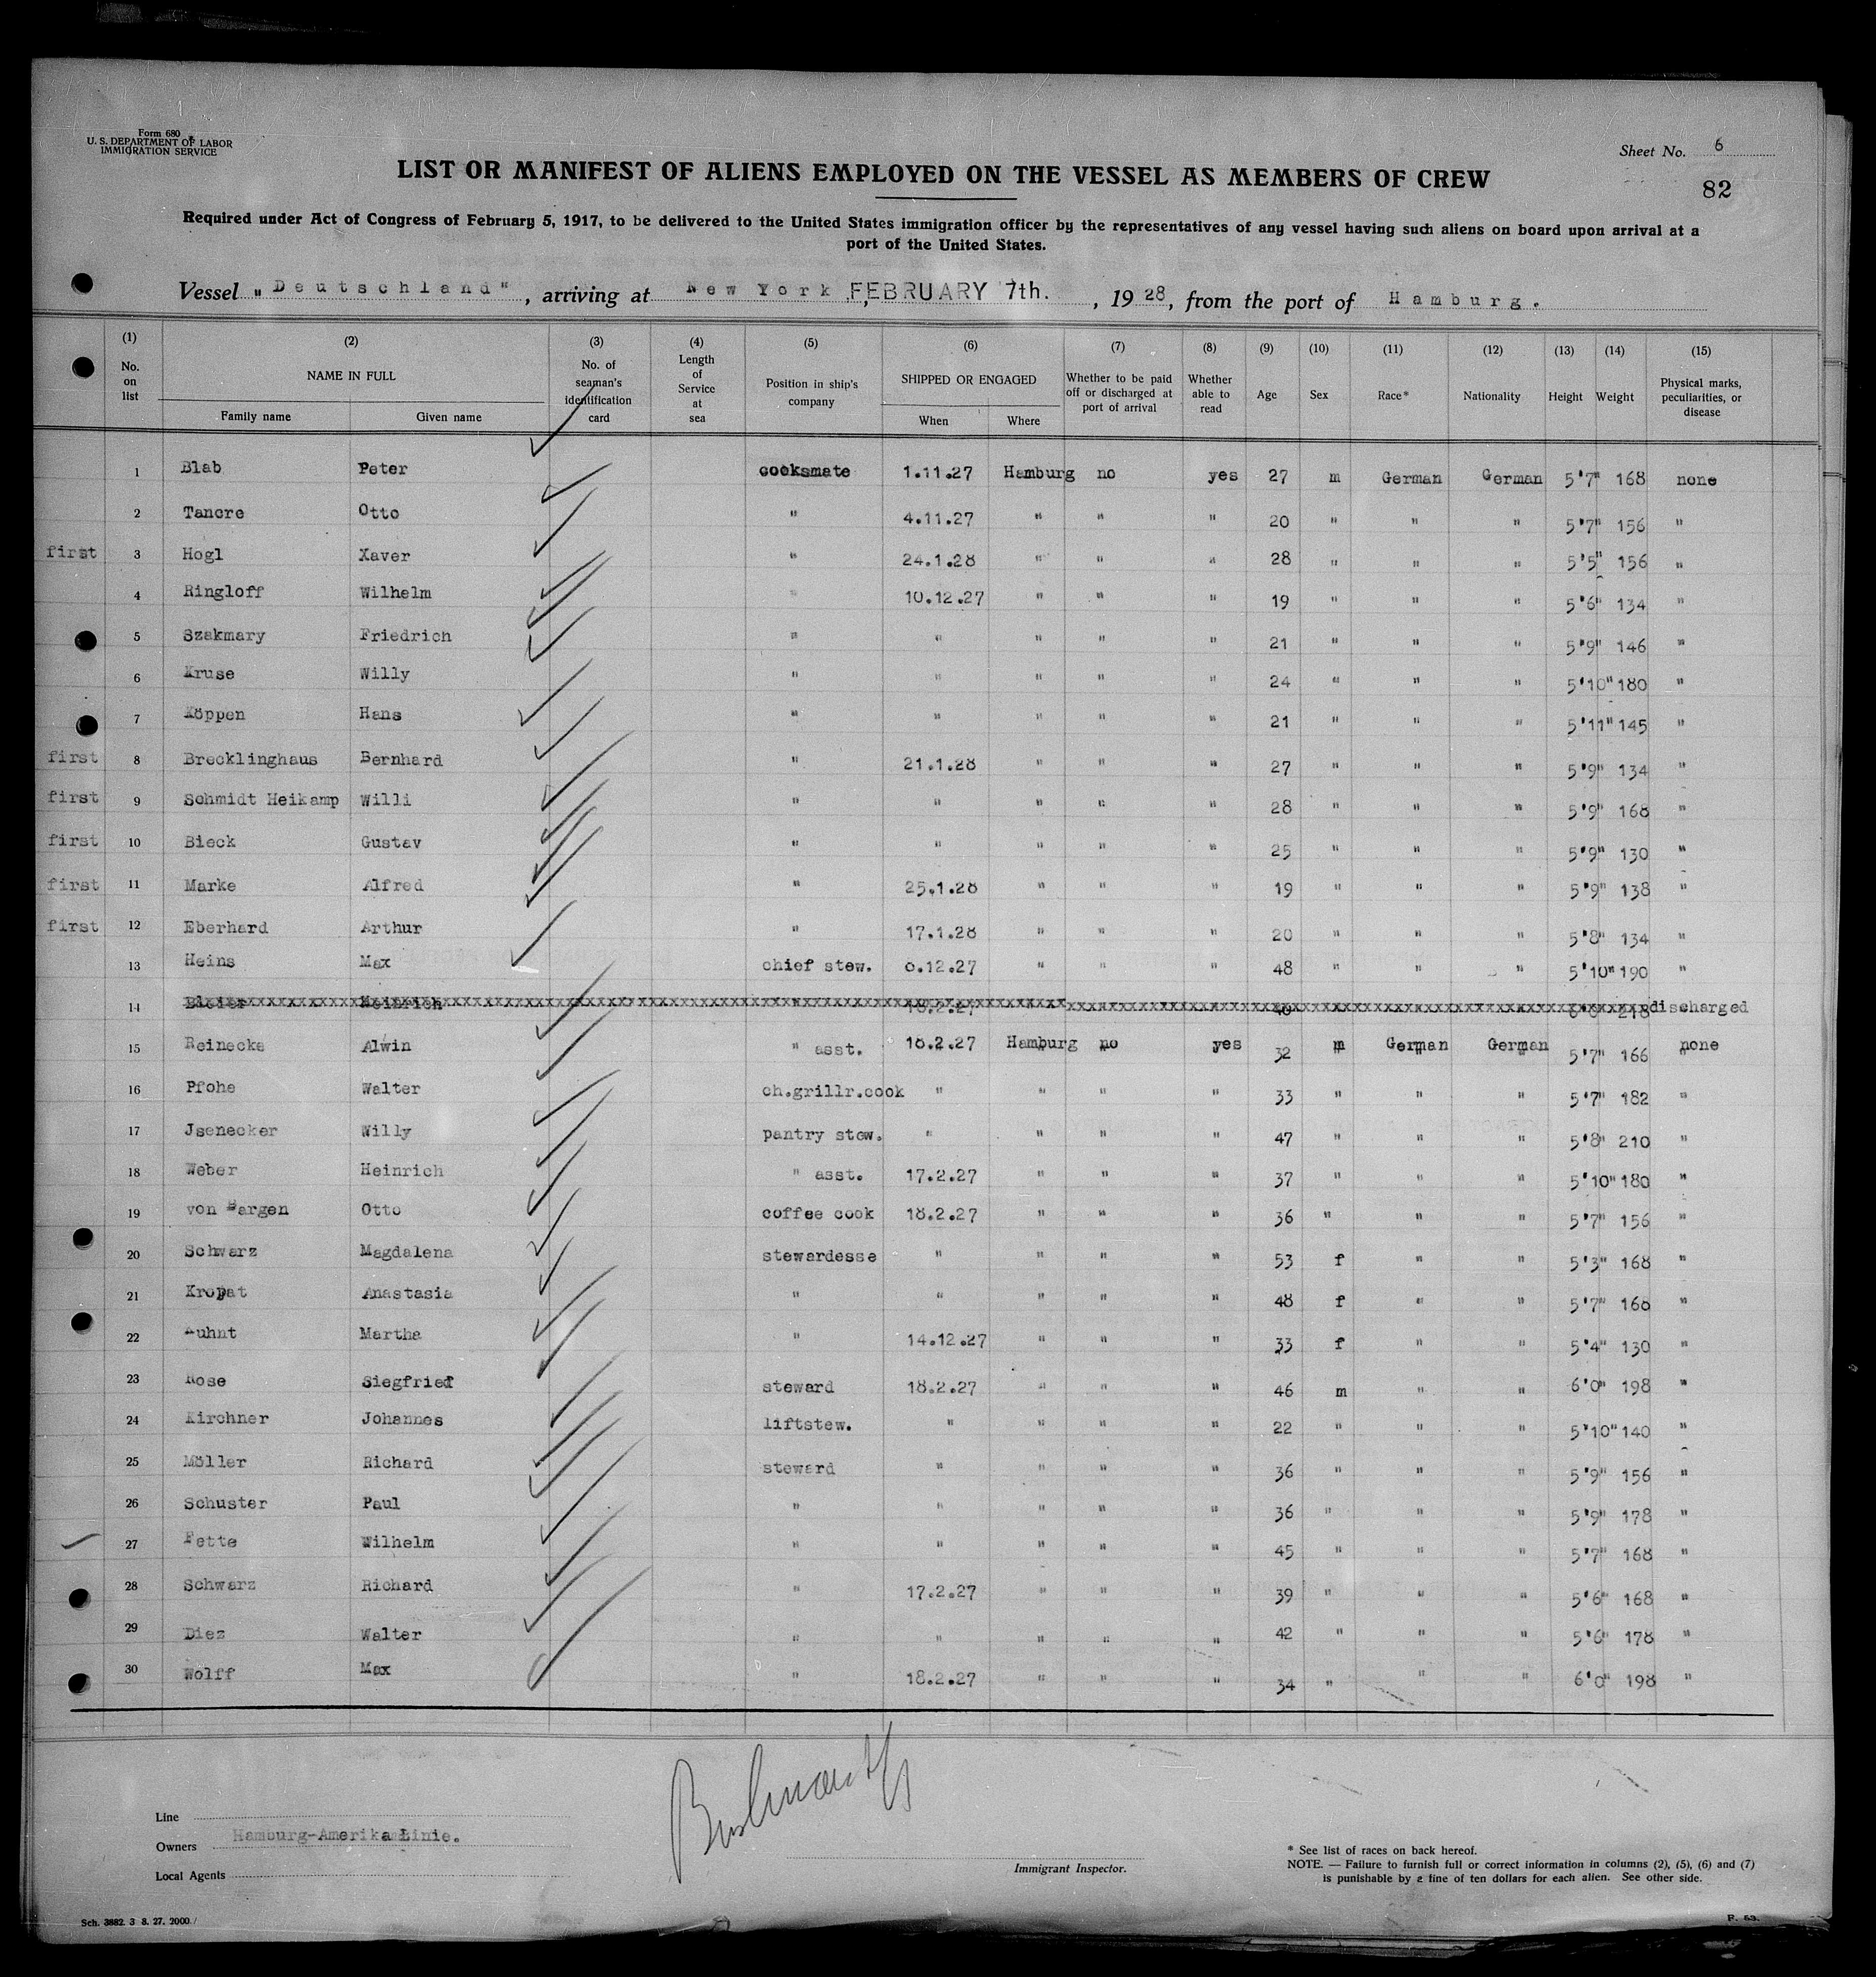 Form 680
U. S. DEPARTMENT OF LABOR
IMMIGRATION SERVICE
Sheet No. 6
LIST OR MANIFEST OF ALIENS EMPLOYED ON THE VESSEL AS MEMBERS OF CREW
82
Required under Act of Congress of February 5, 1917, to be delivered to the United States immigration officer by the representatives of any vessel having such aliens on board upon arrival at a
port of the United States.
Vessel "Deutschland", arriving at New York, FEBRUARY 7th., 1928, from the port of Hamburg.
(1) (2) (3) (4) (5) (6) (7) (8) (9) (10) (11) (12) (13) (14) (15)
No. on list NAME IN FULL Family name Given name No. of seaman's identification card Length of Service at sea Position in ship's company SHIPPED OR ENGAGED When Where Whether to be paid off or discharged at port of arrival Whether able to read Age Sex Race* Nationality Height Weight Physical marks, peculiarities, or disease
1 Blab Peter cooksmate 1.11.27 Hamburg no yes 27 m German German 5'7" 168 none
2 Tancre Otto " 4.11.27 " " " 20 " " " 5'7" 156 "
first 3 Hogl Xaver " 24.1.28 " " " 28 " " " 5'5" 156 "
4 Ringloff Wilhelm " 10.12.27 " " " 19 " " " 5'6" 134 "
5 Szakmary Friedrich " " " " " 21 " " " 5'9" 146 "
6 Kruse Willy " " " " " 24 " " " 5'10" 180 "
7 Köppen Hans " " " " " 21 " " " 5'11" 145 "
first 8 Brecklinghaus Bernhard " 21.1.28 " " " 27 " " " 5'9" 134 "
first 9 Schmidt Heikamp Willi " " " " " 28 " " " 5'9" 168 "
first 10 Bieck Gustav " " " " " 25 " " " 5'9" 130 "
first 11 Marke Alfred " 25.1.28 " " " 19 " " " 5'9" 138 "
first 12 Eberhard Arthur " 17.1.28 " " " 20 " " " 5'8" 134 "
13 Heins Max chief stew. 8.12.27 " " " 48 " " " 5'10" 190 "
14 Heinrich discharged
15 Reinecke Alwin " asst. 18.2.27 Hamburg no yes 32 m German German 5'7" 166 none
16 Pfohe Walter ch.grillr.cook " " " " 33 " " " 5'7" 182 "
17 Jsenecker Willy pantry stew. " " " " 47 " " " 5'8" 210 "
18 Weber Heinrich " asst. 17.2.27 " " " 37 " " " 5'10" 180 "
19 von Bargen Otto coffee cook 18.2.27 " " " 36 " " " 5'7" 156 "
20 Schwarz Magdalena stewardesse " " " " 53 f " " 5'3" 168 "
21 Kropat Anastasia " " " " " 48 f " " 5'7" 168 "
22 Martha " 14.12.27 " " " 33 f " " 5'4" 130 "
23 Rose Siegfried steward 18.2.27 " " " 46 m " " 6'0" 198 "
24 Kirchner Johannes liftstew. " " " " 22 " " " 5'10" 140 "
25 Möller Richard steward " " " " 36 " " " 5'9" 156 "
26 Schuster Paul " " " " " 36 " " " 5'9" 178 "
27 Fette Wilhelm " " " " " 45 " " " 5'7" 168 "
28 Schwarz Richard " 17.2.27 " " " 39 " " " 5'6" 168 "
29 Diez Walter " " " " " 42 " " " 5'6" 178 "
30 Wolff Max " 18.2.27 " " " 34 " " " 6'0" 198 "
Line
Owners Hamburg-Amerika Linie.
Local Agents
Immigrant Inspector.
* See list of races on back hereof.
NOTE. — Failure to furnish full or correct information in columns (2), (5), (6) and (7)
is punishable by a fine of ten dollars for each alien. See other side.
Sch. 3882. 3 8. 27. 2000.
F. 53.